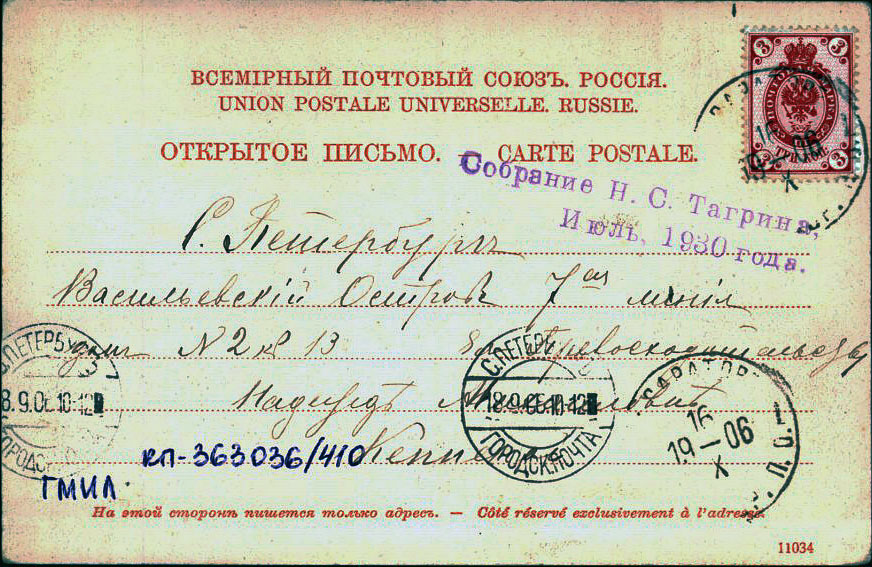 ВСЕМІРНЫЙ ПОЧТОВЫЙ СОЮЗЪ. РОССІЯ.
UNION POSTALE UNIVERSELLE. RUSSIE.
ОТКРЫТОЕ ПИСЬМО. — CARTE POSTALE.
3 3
3 3
16
19—06
X
Собрание Н. С. Тагрина,
Июль, 1930 года.
С. Петербургъ
Васильевскій Островъ 7ая линія
домъ N 2 кв 13 Ея Превосходительству
Надеждѣ
С.ПЕТЕРБУ
8.9.06.10-12
ГОРОДСК
С.ПЕТЕРБ
18.9.06.10-12
ГОРОДСК.ПОЧТА
САРАТОВЪ
16
19—06
X
Г.П.О.
КП-363036/410
ГМИЛ.
На этой сторонѣ пишется только адресъ. — Côté réservé exclusivement à l'adresse.
11034